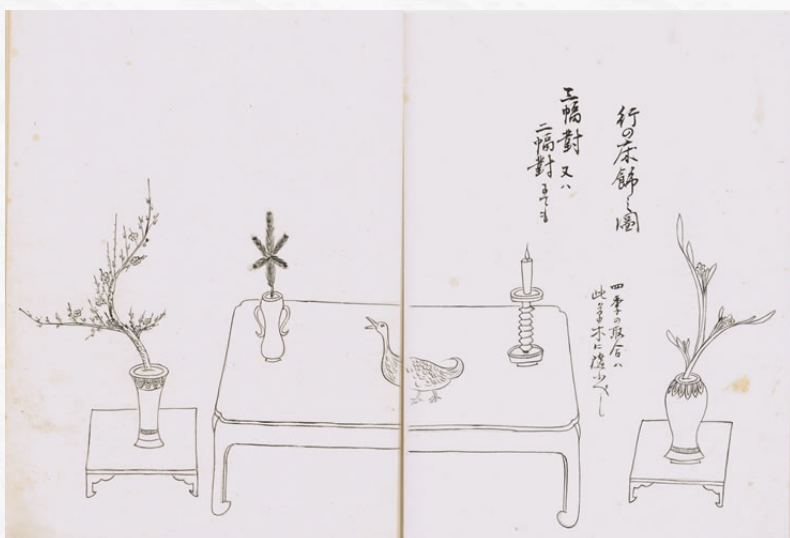 行の床飾之圖
三幅對 又ハ
二幅對にても
四季の取合ハ
此草木に准ふべし